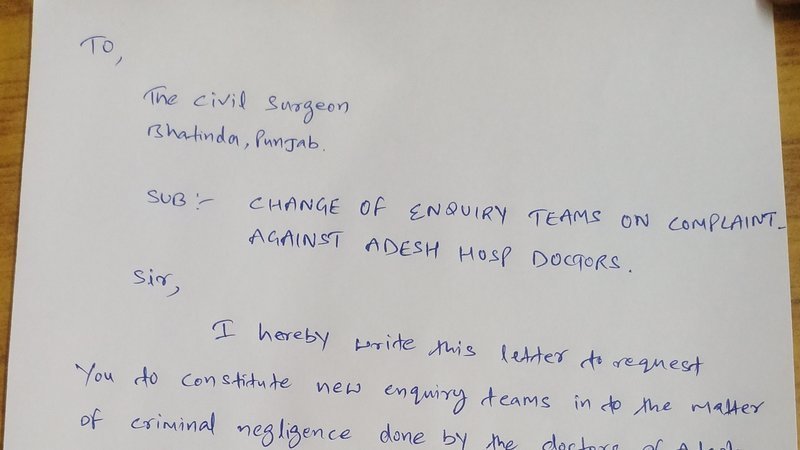 TO,
The Civil Surgeon
Bhatinda, Punjab.
SUB :- CHANGE OF ENQUIRY TEAMS ON COMPLAINT
AGAINST ADESH HOSP DOCTORS.
Sir,
I hereby write this letter to request
You to constitute new enquiry teams in to the matter
of criminal negligence done by the doctors of